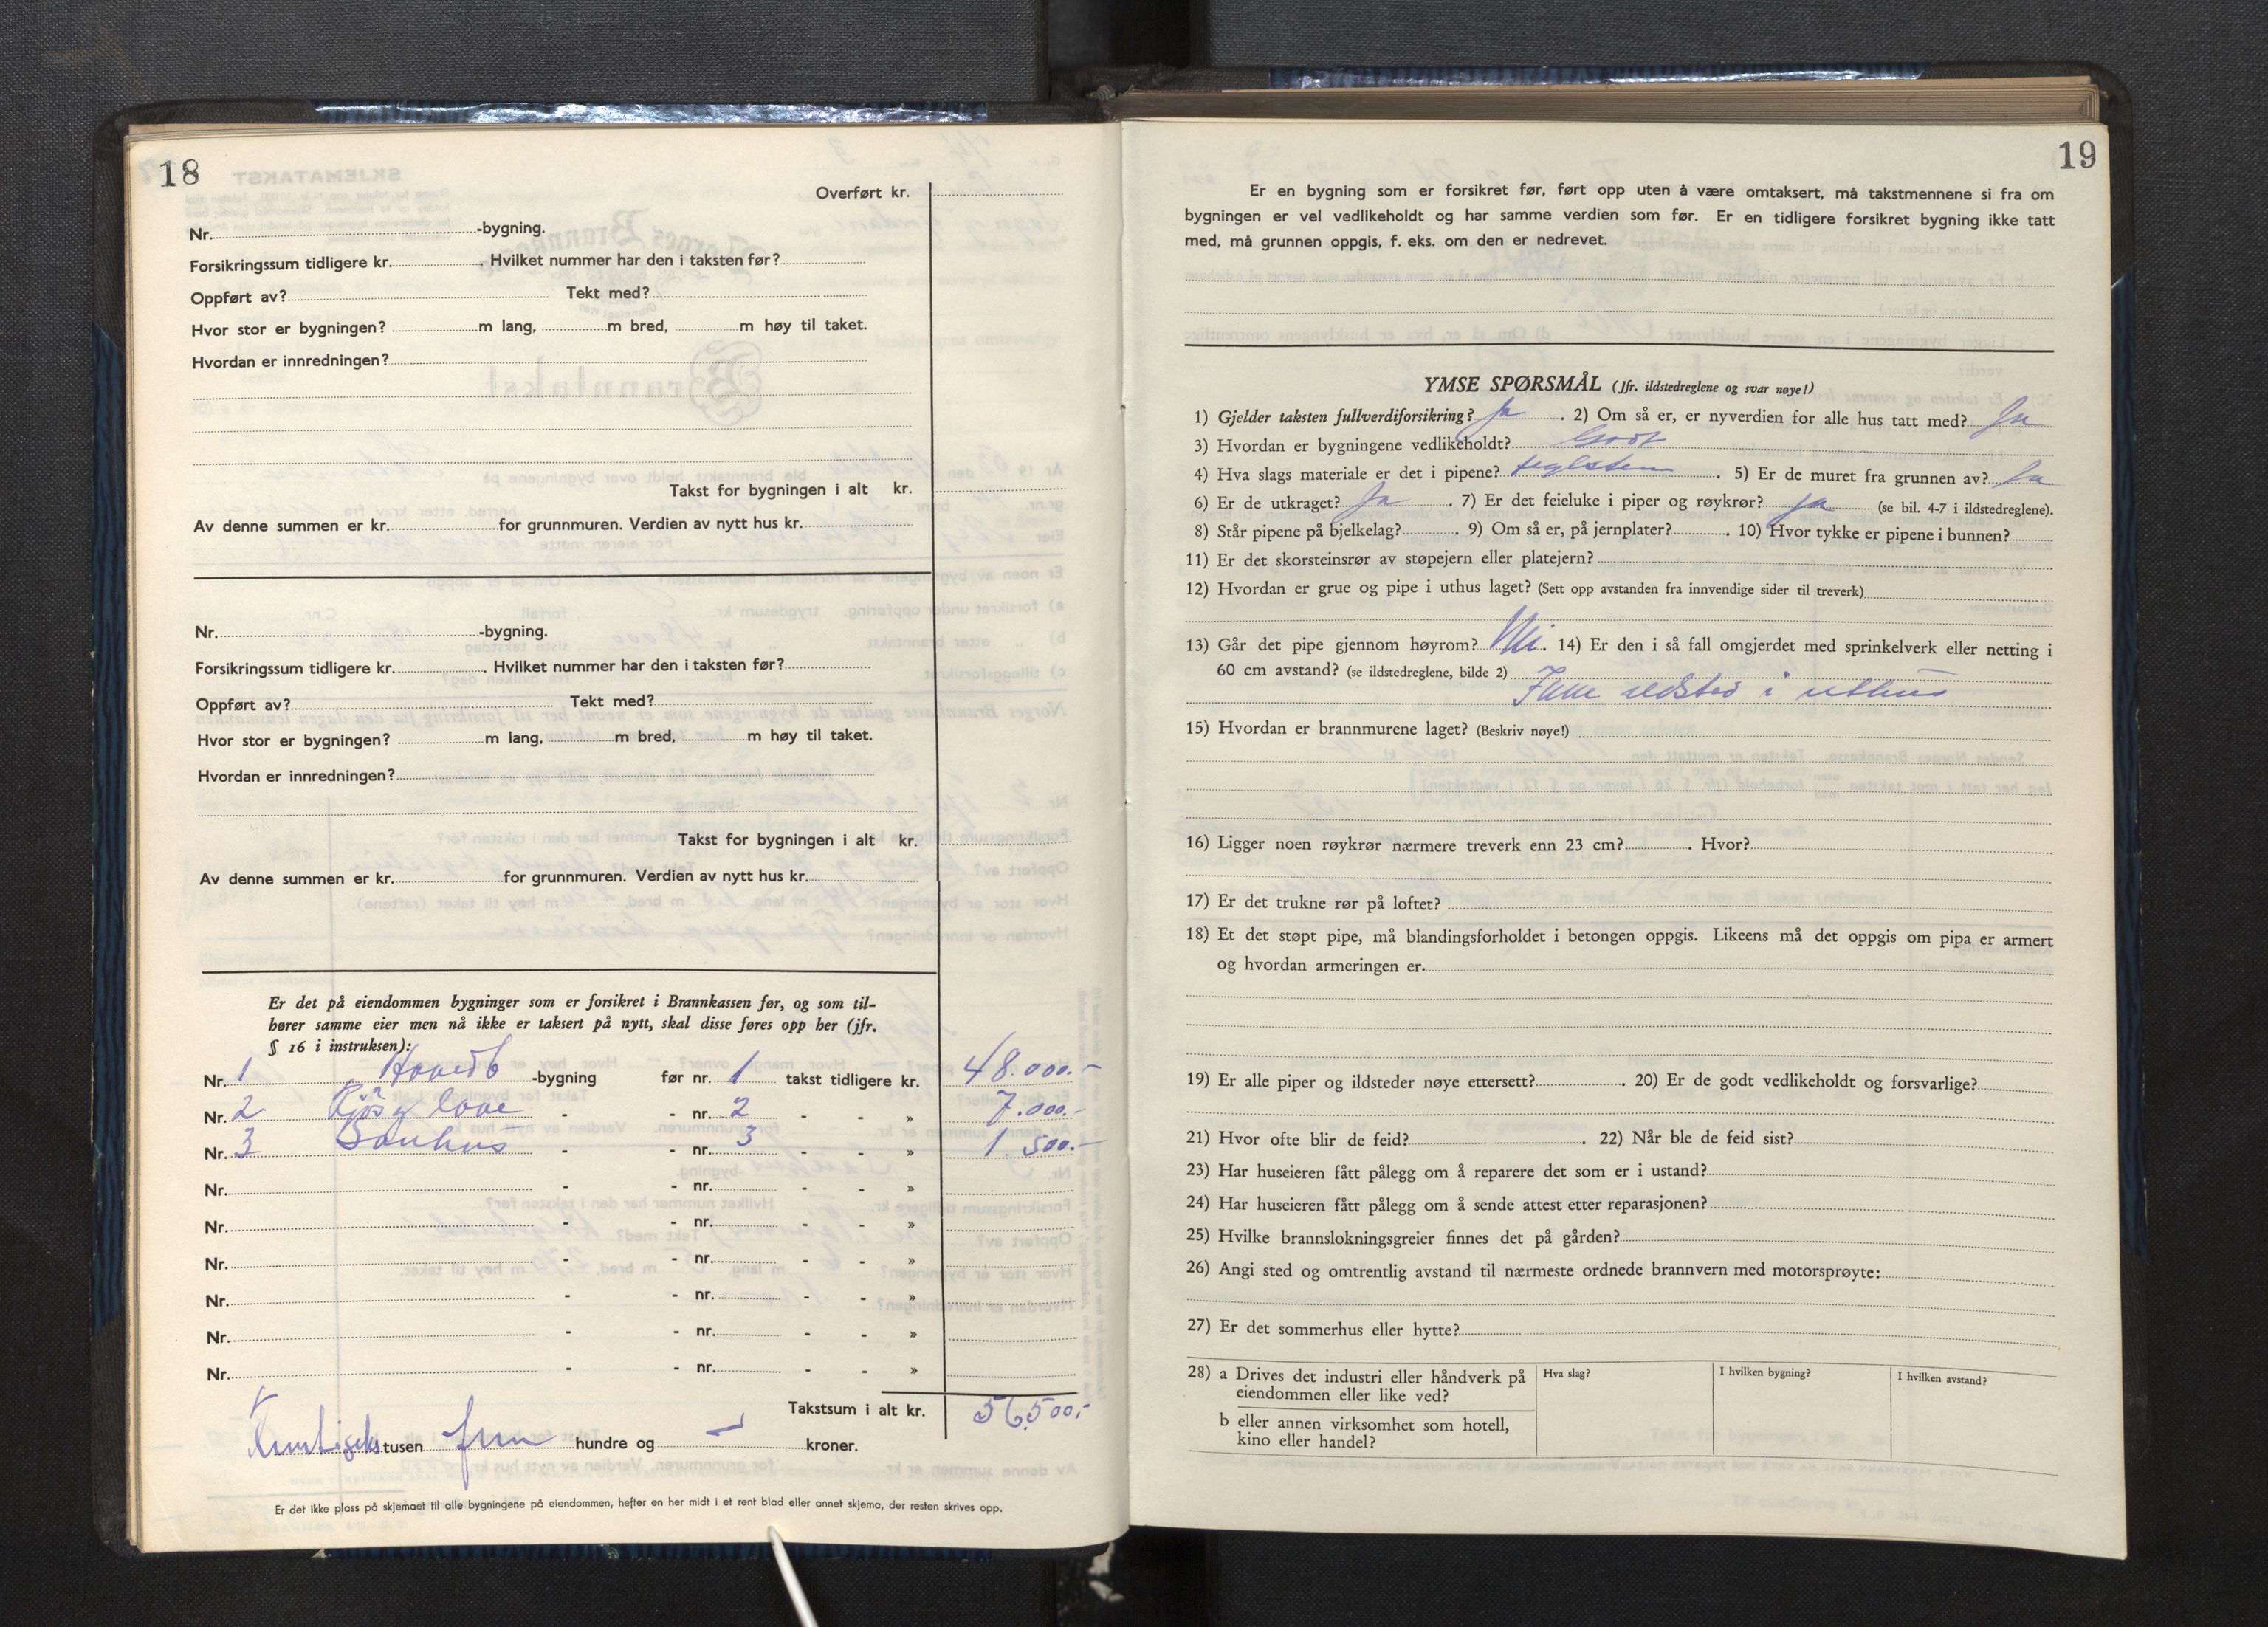 18
Overført kr.
Nr. -bygning.
Forsikringssum tidligere kr. . Hvilket nummer har den i taksten før?
Oppført av? Tekt med?
Hvor stor er bygningen? m lang, m bred, m høy til taket.
Hvordan er innredningen?
Takst for bygningen i alt kr.
Av denne summen er kr. for grunnmuren. Verdien av nytt hus kr.
Nr. -bygning.
Forsikringssum tidligere kr. . Hvilket nummer har den i taksten før?
Oppført av? Tekt med?
Hvor stor er bygningen? m lang, m bred, m høy til taket.
Hvordan er innredningen?
Takst for bygningen i alt kr.
Av denne summen er kr. for grunnmuren. Verdien av nytt hus kr.
Er det på eiendommen bygninger som er forsikret i Brannkassen før, og som til-
hører samme eier men nå ikke er taksert på nytt, skal disse føres opp her (jfr.
§ 16 i instruksen):
Nr. 1 Hovedb -bygning før nr. 1 takst tidligere kr. 48.000.-
Nr. 2 løe - - nr. 2 - - » 7.000.-
Nr. 3 - - nr. 3 - - » 1.500.-
Nr. - - nr. - - »
Nr. - - nr. - - »
Nr. - - nr. - - »
Nr. - - nr. - - »
Nr. - - nr. - - »
Nr. - - nr. - - »
Takstsum i alt kr. 56.500,-
Femtiseks tusen fem hundre og - kroner.
Er det ikke plass på skjemaet til alle bygningene på eiendommen, hefter en her midt i et rent blad eller annet skjema, der resten skrives opp.
19
Er en bygning som er forsikret før, ført opp uten å være omtaksert, må takstmennene si fra om
bygningen er vel vedlikeholdt og har samme verdien som før. Er en tidligere forsikret bygning ikke tatt
med, må grunnen oppgis, f. eks. om den er nedrevet.
YMSE SPØRSMÅL (Jfr. ildstedreglene og svar nøye!)
1) Gjelder taksten fullverdiforsikring? Ja . 2) Om så er, er nyverdien for alle hus tatt med? Ja
3) Hvordan er bygningene vedlikeholdt? Godt
4) Hva slags materiale er det i pipene? teglstein . 5) Er de muret fra grunnen av? Ja
6) Er de utkraget? Ja . 7) Er det feieluke i piper og røykrør? Ja (se bil. 4-7 i ildstedreglene).
8) Står pipene på bjelkelag? . 9) Om så er, på jernplater? . 10) Hvor tykke er pipene i bunnen?
11) Er det skorsteinsrør av støpejern eller platejern?
12) Hvordan er grue og pipe i uthus laget? (Sett opp avstanden fra innvendige sider til treverk)
13) Går det pipe gjennom høyrom? Nei . 14) Er den i så fall omgjerdet med sprinkelverk eller netting i
60 cm avstand? (se ildstedreglene, bilde 2)
Ikke ildsted i uthus
15) Hvordan er brannmurene laget? (Beskriv nøye!)
16) Ligger noen røykrør nærmere treverk enn 23 cm? . Hvor?
17) Er det trukne rør på loftet?
18) Et det støpt pipe, må blandingsforholdet i betongen oppgis. Likeens må det oppgis om pipa er armert
og hvordan armeringen er.
19) Er alle piper og ildsteder nøye ettersett? . 20) Er de godt vedlikeholdt og forsvarlige?
21) Hvor ofte blir de feid? . 22) Når ble de feid sist?
23) Har huseieren fått pålegg om å reparere det som er i ustand?
24) Har huseieren fått pålegg om å sende attest etter reparasjonen?
25) Hvilke brannslokningsgreier finnes det på gården?
26) Angi sted og omtrentlig avstand til nærmeste ordnede brannvern med motorsprøyte:
27) Er det sommerhus eller hytte?
28) a Drives det industri eller håndverk på Hva slag? I hvilken bygning? I hvilken avstand?
eiendommen eller like ved?
b eller annen virksomhet som hotell,
kino eller handel?